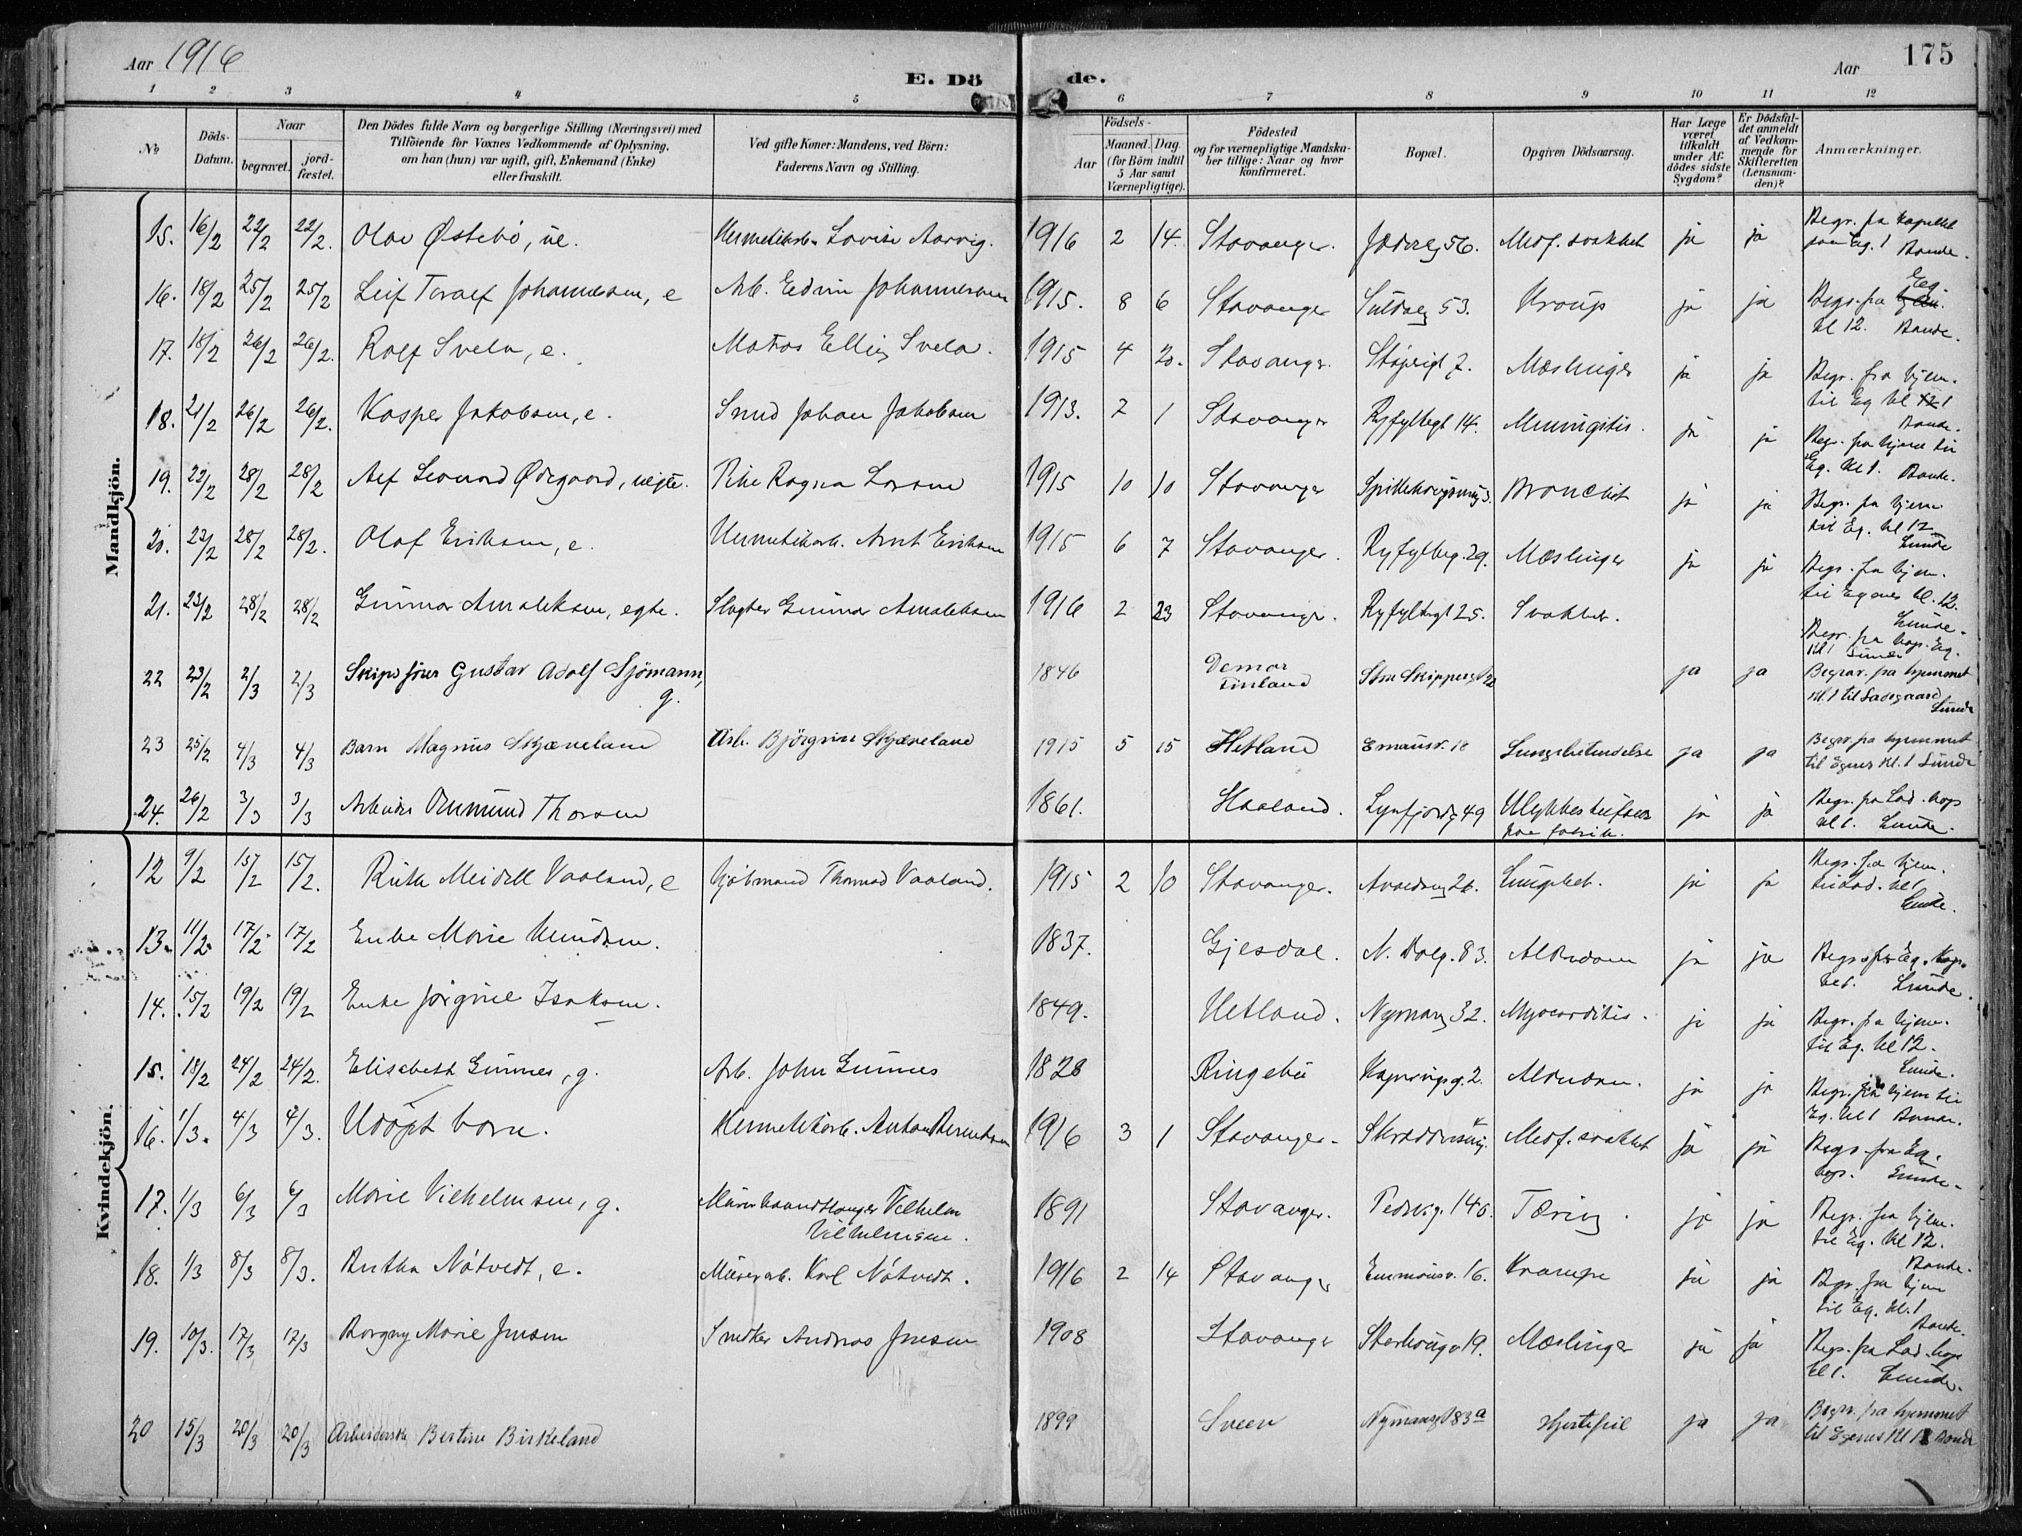 Aar 1916
E. Dö de.
Aar
175
1 2 3 4 5 6 7 8 9 10 11 12
No
Döds-Datum.
Naar
begravet.
jord-fæstet.
Den Dödes fulde Navn og borgerlige Stilling (Næringsvei) med
Tilföiende for Voxnes Vedkommende af Oplysning,
om han (hun) var ugift, gift, Enkemand (Enke)
eller fraskilt.
Ved gifte Koner: Mandens, ved Börn:
Faderens Navn og Stilling.
Födsels-
Aar
Maaned. Dag.
(for Börn indtil
5 Aar samt
Værnepligtige).
Födested
og for værnepligtige Mandska-
ber tillige: Naar og hvor
konfirmeret.
Bopæl.
Opgiven Dödsaarsag.
Har Læge
været
tilkaldt
under Af-
dödes sidste
Sygdom?
Er Dödsfal-
det anmeldt
af Vedkom-
mende for
Skifteretten
(Lensman-
den)?
Anmærkninger.
Mandkjön.
15. 16/2 22/2 22/2. Olav Østebö, ue. Hermetikarb. Lovise Aarvig. 1916 2 14. Stavanger. 56. Medf. svakhet ja ja Begr. fra kapellet
Eg. 1 Bande.
16. 18/2 25/2 25/2 Leif Toralf Johannesen, e Arb. Edvin Johannesen 1915. 8 6 Stavanger Suldalg 53. Kroup ja ja Begr. fra Eg.
kl 12. Bande.
17. 18/2 26/2 26/2. Rolf Svela, e. Matros Svela. 1915 4 20. Stavanger. 7. Mæslinger ja ja Begr. fra hjem.
til Eg kl 1
Bande.
18. 21/2 26/2 26/2. Kasper Jakobsen, e. Smed Johan Jakobsen 1913. 2 1 Stavanger Ryfylkegt 14. Meningitis. ja ja Begr. fra hjem til
Eg. kl 1. Bande.
19. 22/2 28/2 28/2 Alf Leonard Ødegaard, uegte. Pike Ragna Larsen 1915 10 10 Stavanger Bronchit ja ja Begr. fra hjem
til Eg. kl 12
Lunde
20. 23/2 28/2 28/2. Olaf Eriksen, e. Hermetikarb. Arnt Eriksen 1915 6 7 Stavanger. Ryfylkeg. 29. Mæslinger ja ja Begr. fra hjem.
til Egenes kl. 12.
Lunde.
21. 23/2 28/2 28/2 Gunnar Amaleksen, egte. Slagter Gunnar Amaleksen 1916 2 23 Stavanger. Ryfylkegt 25. Svakhet. Begr. fra kap. Eg.
kl 1 Lunde
22 23/2 2/3 2/3 Skipsförer Gustav Adolf Sjömann,
g. 1846 Finland ja ja Begrav. fra hjemmet
kl. 1 til Ladegaard
Lunde
23 25/2 4/3 4/3 Barn Magnus Skjæveland Arb. Skjæveland 1915 5 15 Hetland Emausv. 18 Lungebetændelse ja ja Begrav. fra hjemmet
til Egenes kl. 1 Lunde
24. 26/2 3/3 3/3 Arbeider Thorsen 1861. Haaland. Lysfjordg 49 Ulykkestilfælde
paa fabrik. ja ja Begr. fra Lad. kap
kl 1. Lunde.
Kvindekjön.
12 9/2 15/2 15/2. Ruth Meidell Vaaland, e Thomas Vaaland. 1915 2 10 Stavanger. 26. Lungebet. ja ja Begr. fra hjem.
til Lad. kl 1
Lunde.
13. 11/2. 17/2 17/2 Enke Marie 1837. Gjesdal. N. Dalg. 83. Alderdom ja ja Begr. fra Eg. Kap.
kl 1. Lunde.
14. 15/2 19/2 19/2 Enke Jörgine Isaksen. 1849. Hetland. Nymansg 32. Myocarditis. ja ja Begr. fra hjem.
til Eg. kl 12.
Lunde.
15. 18/2 24/2 24/2. Elisabeth Gunnes, g. Arb. John Gunnes 1828 Ringebu 2. Alderdom. ja ja Begr. fra hjem til
Eg. kl 1 Bande.
16. 1/3. 4/3 4/3. Udöpt barn. Hermetikarb. Anton Berentsen 1916 3 1 Stavanger. Medf. svakhet ja ja Begr. fra Eg.
kap. Lunde.
17. 1/3 6/3 6/3 Marie Vilhelmsen, g. Murerhaandlanger Vilhelm
Vilhelmsen. 1891 Stavanger. Pedersg. Tæring. ja ja Begr. fra hjem.
til Eg. kl 12.
Bande.
18. 1/3 8/3 8/3. Nötvedt, e. Murerarb. Karl Nötvedt. 1916 2 14 Stavanger Emmausv. 16. Krampe ja ja Begr. fra hjem
til Eg. kl. 1
Bande.
19. 10/3. 17/3 17/3 Borgny Marie Jensen Snekker Andreas Jensen 1908 Stavanger 19. Mæslinger ja ja Begr. fra Lad. kap
kl 1. Lunde.
20 15/3 20/3 20/3 Arbeiderske Bertine Birkeland 1899 Sveen Nymansgt 83a Hjertefeil ja ja Begrav. fra hjemmet
til Egenes kl 1 Bande